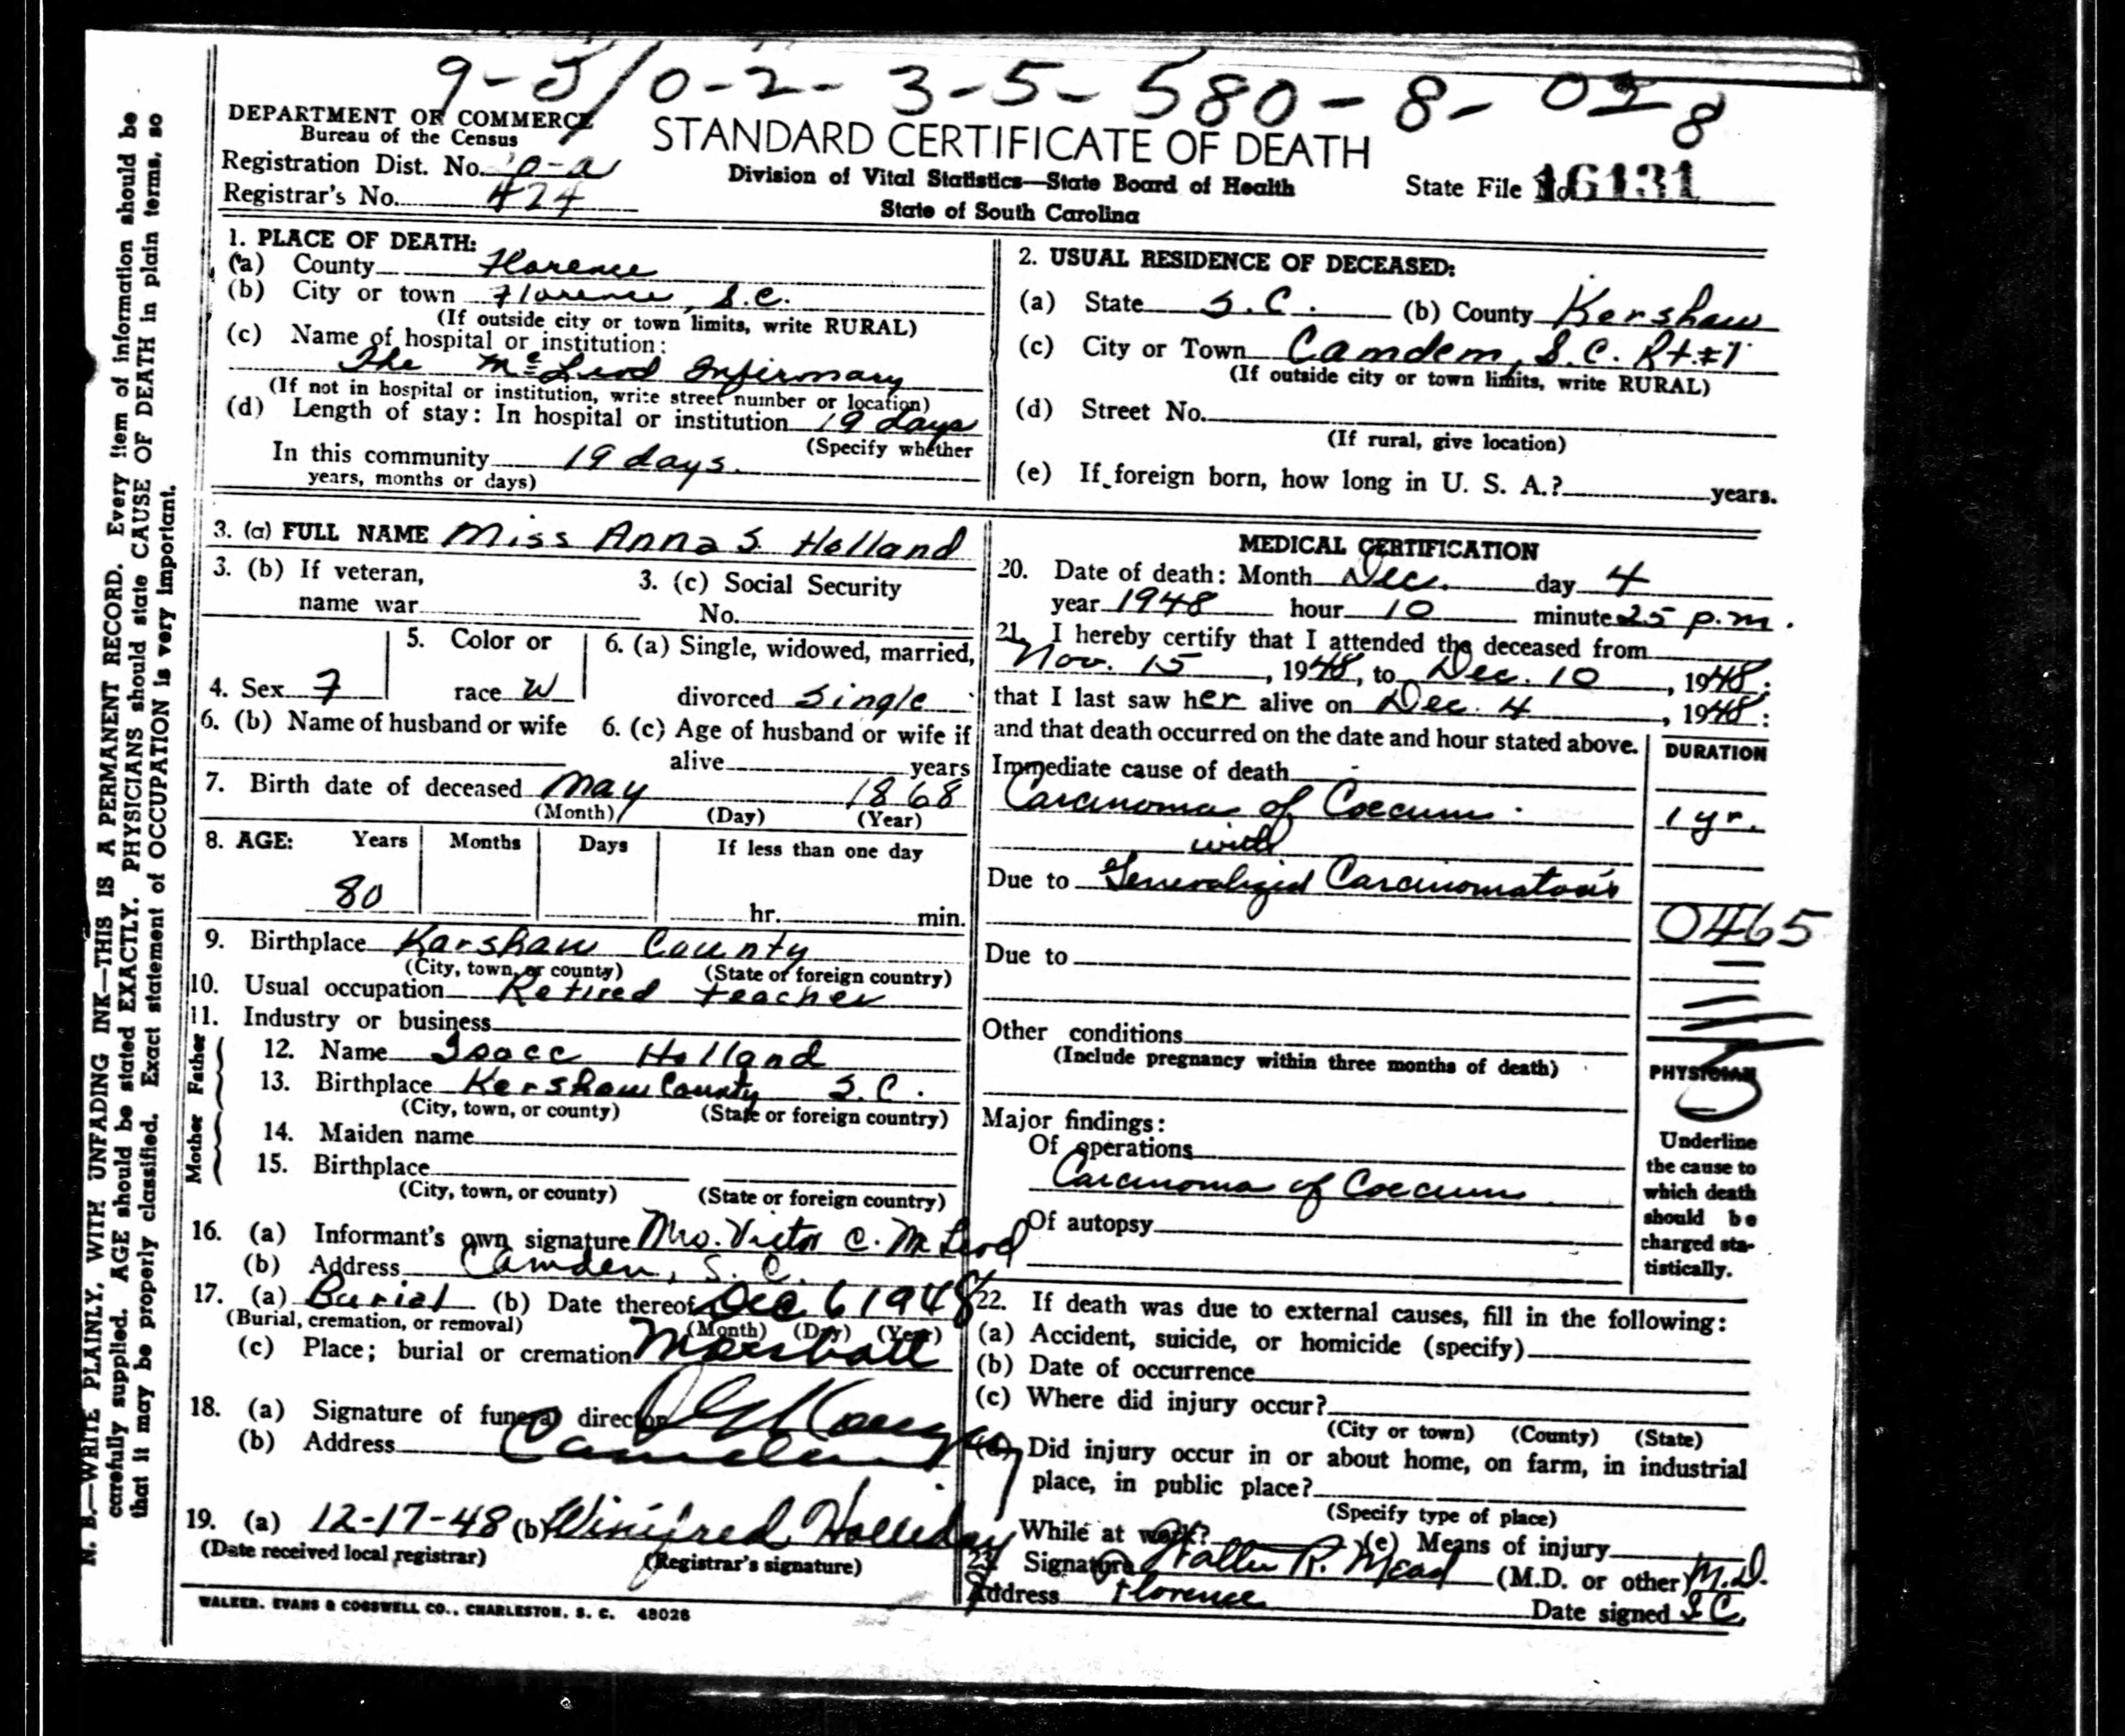 9-5/0-2-3-5-580-8-038
DEPARTMENT OF COMMERCE
Bureau of the Census
STANDARD CERTIFICATE OF DEATH
Registration Dist. No.
Division of Vital Statistics—State Board of Health
State File No. 16131
Registrar's No. 424
State of South Carolina
1. PLACE OF DEATH:
(a) County Florence
(b) City or town Florence, S.C.
(If outside city or town limits, write RURAL)
(c) Name of hospital or institution:
The McLeod Infirmary
(If not in hospital or institution, write street number or location)
(d) Length of stay: In hospital or institution 19 days
(Specify whether
In this community 19 days.
years, months or days)
2. USUAL RESIDENCE OF DECEASED:
(a) State S.C. (b) County Kershaw
(c) City or Town Camden, S.C. Rt. #1
(If outside city or town limits, write RURAL)
(d) Street No.
(If rural, give location)
(e) If foreign born, how long in U. S. A.? years.
3. (a) FULL NAME Miss Anna S. Holland
3. (b) If veteran,
name war
3. (c) Social Security
No.
4. Sex F
5. Color or
race W
6. (a) Single, widowed, married,
divorced Single
6. (b) Name of husband or wife
6. (c) Age of husband or wife if
alive years
7. Birth date of deceased May 1868
(Month) (Day) (Year)
8. AGE: Years Months Days If less than one day
80 hr. min.
9. Birthplace Karshaw County
(City, town, or county) (State or foreign country)
10. Usual occupation Retired teacher
11. Industry or business
Father
12. Name Isacc Holland
13. Birthplace Kershaw County S.C.
(City, town, or county) (State or foreign country)
Mother
14. Maiden name
15. Birthplace
(City, town, or county) (State or foreign country)
16. (a) Informant's own signature Mrs. Victor C. McLeod
(b) Address Camden, S. C.
17. (a) Burial (b) Date thereof Dec 6 1948
(Burial, cremation, or removal) (Month) (Day) (Year)
(c) Place; burial or cremation Marshall
18. (a) Signature of funeral director
(b) Address Camden
19. (a) 12-17-48 (b) Winifred Holliday
(Date received local registrar) (Registrar's signature)
WALKER, EVANS & COGSWELL CO., CHARLESTON, S. C. 48026
MEDICAL CERTIFICATION
20. Date of death: Month Dec. day 4
year 1948 hour 10 minute 25 p.m.
21. I hereby certify that I attended the deceased from
Nov. 15, 1948, to Dec. 10, 1948;
that I last saw her alive on Dec. 4, 1948:
and that death occurred on the date and hour stated above.
DURATION
Immediate cause of death
Carcinoma of Coecum 1 yr.
with
Due to Generalized Carcinomatosis
0465
Due to
Other conditions
(Include pregnancy within three months of death)
PHYSICIAN
5
Major findings:
Of operations
Carcinoma of Coecum
Of autopsy
Underline
the cause to
which death
should be
charged sta-
tistically.
22. If death was due to external causes, fill in the following:
(a) Accident, suicide, or homicide (specify)
(b) Date of occurrence
(c) Where did injury occur?
(City or town) (County) (State)
(d) Did injury occur in or about home, on farm, in industrial
place, in public place?
(Specify type of place)
While at work? (e) Means of injury
23. Signature Walter R. Mead (M.D. or other) M.D.
Address Florence Date signed S.C.
N. B.—WRITE PLAINLY, WITH UNFADING INK—THIS IS A PERMANENT RECORD. Every item of information should be
carefully supplied. AGE should be stated EXACTLY. PHYSICIANS should state CAUSE OF DEATH in plain terms, so
that it may be properly classified. Exact statement of OCCUPATION is very important.